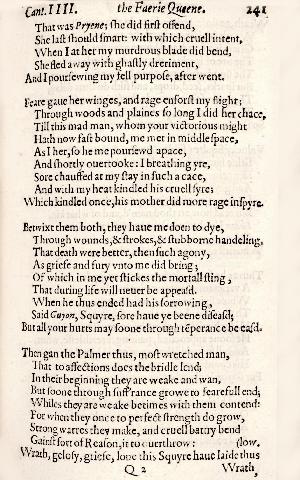 Cant. IIII. the Faerie Queene. 241
That was Pryene; she did first offend,
She last should smart: with which cruell intent,
When I at her my murdrous blade did bend,
She fled away with ghastly dreriment,
And I pourſewing my fell purpoſe, after went.
Feare gaue her winges, and rage enforſt my flight;
Through woods and plaines ſo long I did her chace,
Till this mad man, whom your victorious might
Hath now faſt bound, me met in middle ſpace,
As I her, ſo he me pourſewd apace,
And ſhortly ouertooke: I breathing yre,
Sore chauffed at my ſtay in ſuch a cace,
And with my heat kindled his cruell fyre;
Which kindled once, his mother did more rage inſpyre.
Betwixt them both, they haue me doen to dye,
Through wounds, & ſtrokes, & ſtubborne handeling,
That death were better, then ſuch agony,
As griefe and fury vnto me did bring;
Of which in me yet ſtickes the mortall ſting,
That during life will neuer be appeaſd.
When he thus ended had his ſorrowing,
Said Guyon, Squyre, ſore haue ye beene diſeaſd;
But all your hurts may ſoone through tẽperance be eaſd.
Then gan the Palmer thus, moſt wretched man,
That to affections does the bridle lend;
In their beginning they are weake and wan,
But ſoone through ſuff'rance growe to fearefull end;
Whiles they are weake betimes with them contend:
For when they once to perfect ſtrength do grow,
Strong warres they make, and cruell battry bend
Gainſt fort of Reaſon, it to ouerthrow: (low.
Wrath, geloſy, griefe, loue this Squyre haue laide thus
Q 2 Wrath,